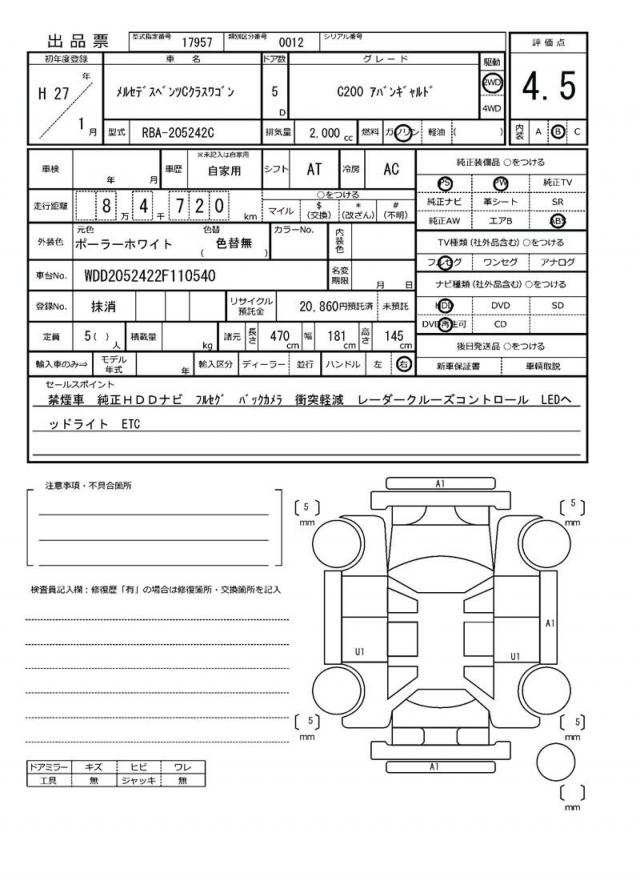 出品票 型式指定番号 17957 類別区分番号 0012 シリアル番号
初年度登録 車名 ドア数 グレード 駆動 評価点
H 27 年 1 月 メルセデスベンツCクラスワゴン 5 D C200 アバンギャルド 2WD 4WD 4.5
型式 RBA-205242C 排気量 2,000 cc 燃料 ガソリン 軽油 ( ) 内装 A B C
車検 年 月 車歴 ※未記入は自家用 自家用 シフト AT 冷房 AC 純正装備品 ○をつける
PS PW 純正TV
走行距離 8 万 4 千 7 2 0 km ○をつける
マイル $(交換) *(改ざん) #(不明) 純正ナビ 革シート SR
純正AW エアB ABS
外装色 元色 ポーラーホワイト 色替 ( 色替無 ) カラーNo. 内装色 TV種類(社外品含む)○をつける
フルセグ ワンセグ アナログ
車台No. WDD2052422F110540 名変期限 月 日 ナビ種類(社外品含む)○をつける
登録No. 抹消 リサイクル預託金 20,860円預託済 未預託 HDD DVD SD
DVD再生可 CD
定員 5( ) 人 積載量 kg 諸元 長さ 470 cm 幅 181 cm 高さ 145 cm 後日発送品 ○をつける
輸入車のみ⇒ モデル年式 年 輸入区分 ディーラー 並行 ハンドル 左 右 新車保証書 車輌取説
セールスポイント
禁煙車 純正HDDナビ フルセグ バックカメラ 衝突軽減 レーダークルーズコントロール LEDヘ
ッドライト ETC
注意事項・不具合箇所
検査員記入欄:修復歴「有」の場合は修復箇所・交換箇所を記入
A1
5 mm
5 mm
A1
U1
U1
5 mm
5 mm
A1
mm
ドアミラー キズ ヒビ ワレ
工具 無 ジャッキ 無